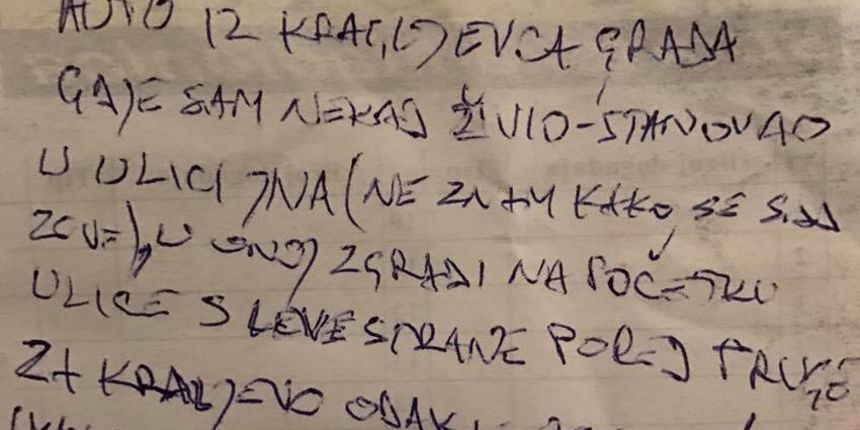 AUTO IZ KRAGUJEVCA GRADA
GDJE SAM NEKAD ŽIVIO-STANOVAO
U ULICI JNA (NE ZNAM KAKO SE SAD
ZOVE), U ONOJ ZGRADI NA POČETKU
ULICE S LEVE STRANE PORED PRUGE
ZA KRALJEVO ODAK